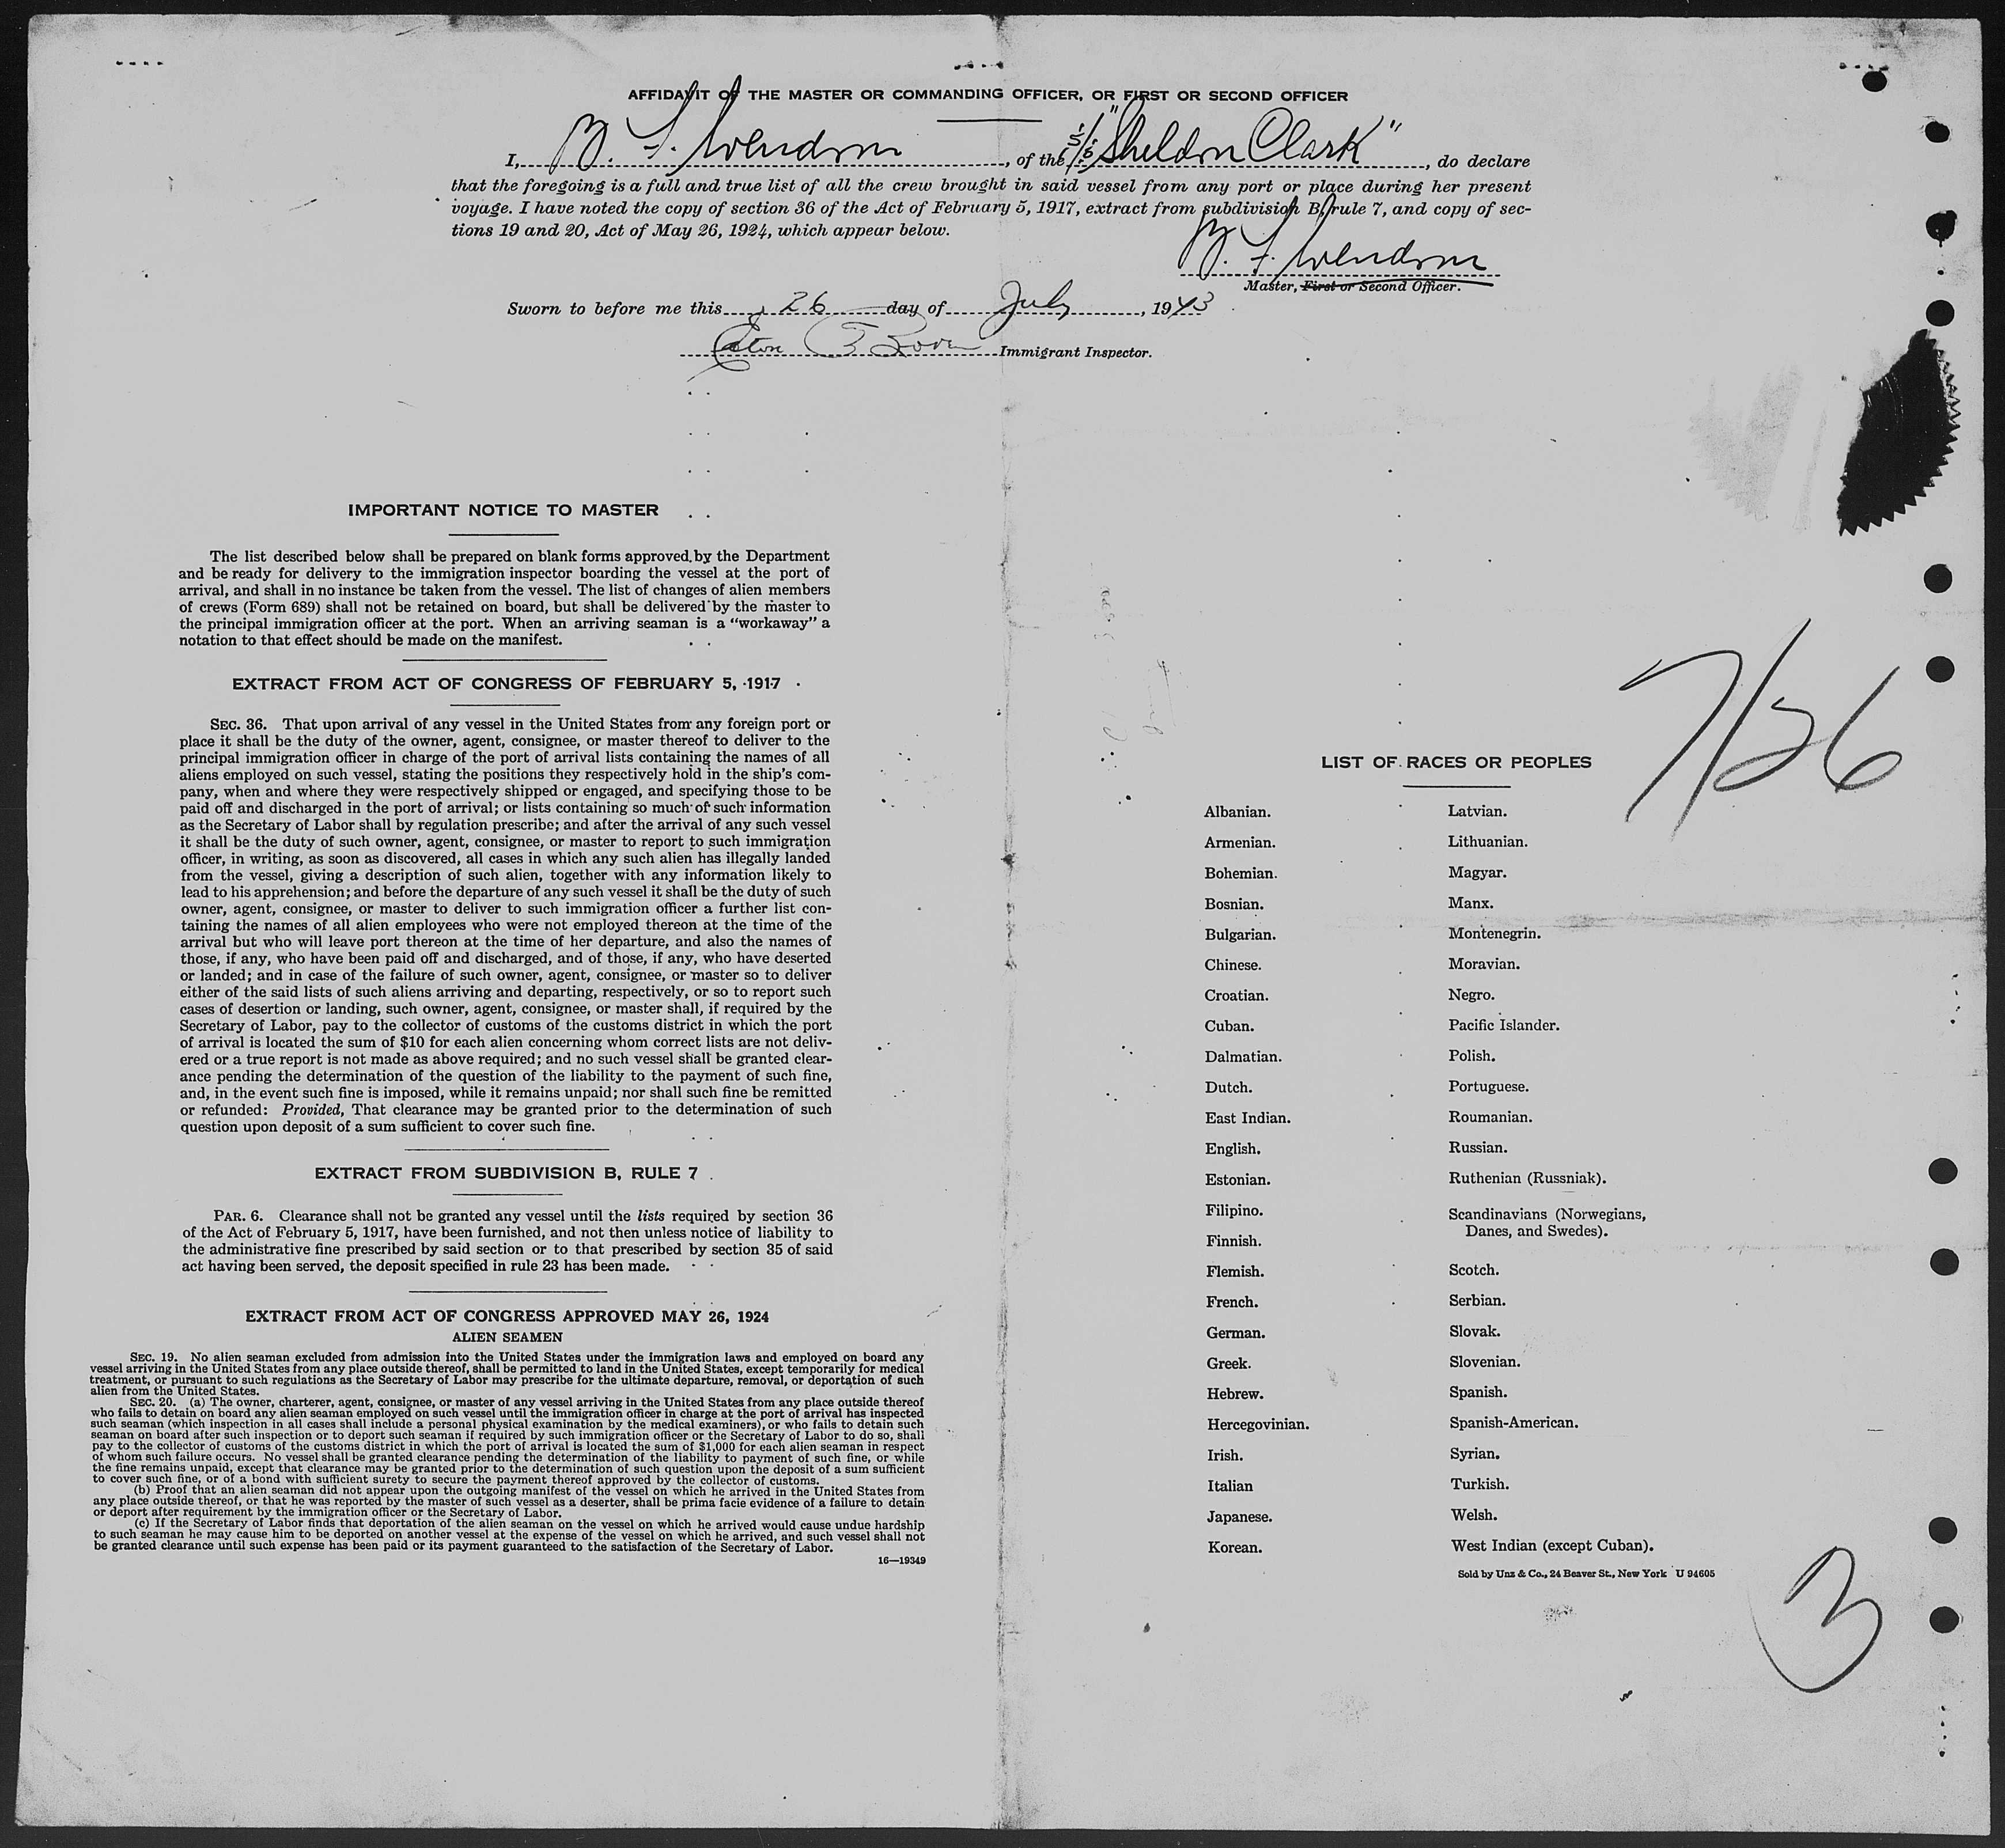 AFFIDAVIT OF THE MASTER OR COMMANDING OFFICER, OR FIRST OR SECOND OFFICER
I, F. Wendron, of the S/S "Sheldon Clark", do declare
that the foregoing is a full and true list of all the crew brought in said vessel from any port or place during her present
voyage. I have noted the copy of section 36 of the Act of February 5, 1917, extract from subdivision B, rule 7, and copy of sec-
tions 19 and 20, Act of May 26, 1924, which appear below.
F. Wendron
Master, First or Second Officer.
Sworn to before me this 26 day of July, 1943
Immigrant Inspector.
IMPORTANT NOTICE TO MASTER
The list described below shall be prepared on blank forms approved by the Department
and be ready for delivery to the immigration inspector boarding the vessel at the port of
arrival, and shall in no instance be taken from the vessel. The list of changes of alien members
of crews (Form 689) shall not be retained on board, but shall be delivered by the master to
the principal immigration officer at the port. When an arriving seaman is a "workaway" a
notation to that effect should be made on the manifest.
EXTRACT FROM ACT OF CONGRESS OF FEBRUARY 5, 1917
SEC. 36. That upon arrival of any vessel in the United States from any foreign port or
place it shall be the duty of the owner, agent, consignee, or master thereof to deliver to the
principal immigration officer in charge of the port of arrival lists containing the names of all
aliens employed on such vessel, stating the positions they respectively hold in the ship's com-
pany, when and where they were respectively shipped or engaged, and specifying those to be
paid off and discharged in the port of arrival; or lists containing so much of such information
as the Secretary of Labor shall by regulation prescribe; and after the arrival of any such vessel
it shall be the duty of such owner, agent, consignee, or master to report to such immigration
officer, in writing, as soon as discovered, all cases in which any such alien has illegally landed
from the vessel, giving a description of such alien, together with any information likely to
lead to his apprehension; and before the departure of any such vessel it shall be the duty of such
owner, agent, consignee, or master to deliver to such immigration officer a further list con-
taining the names of all alien employees who were not employed thereon at the time of the
arrival but who will leave port thereon at the time of her departure, and also the names of
those, if any, who have been paid off and discharged, and of those, if any, who have deserted
or landed; and in case of the failure of such owner, agent, consignee, or master so to deliver
either of the said lists of such aliens arriving and departing, respectively, or so to report such
cases of desertion or landing, such owner, agent, consignee, or master shall, if required by the
Secretary of Labor, pay to the collector of customs of the customs district in which the port
of arrival is located the sum of $10 for each alien concerning whom correct lists are not deliv-
ered or a true report is not made as above required; and no such vessel shall be granted clear-
ance pending the determination of the question of the liability to the payment of such fine,
and, in the event such fine is imposed, while it remains unpaid; nor shall such fine be remitted
or refunded: Provided, That clearance may be granted prior to the determination of such
question upon deposit of a sum sufficient to cover such fine.
EXTRACT FROM SUBDIVISION B, RULE 7
PAR. 6. Clearance shall not be granted any vessel until the lists required by section 36
of the Act of February 5, 1917, have been furnished, and not then unless notice of liability to
the administrative fine prescribed by said section or to that prescribed by section 35 of said
act having been served, the deposit specified in rule 23 has been made.
EXTRACT FROM ACT OF CONGRESS APPROVED MAY 26, 1924
ALIEN SEAMEN
SEC. 19. No alien seaman excluded from admission into the United States under the immigration laws and employed on board any
vessel arriving in the United States from any place outside thereof, shall be permitted to land in the United States, except temporarily for medical
treatment, or pursuant to such regulations as the Secretary of Labor may prescribe for the ultimate departure, removal, or deportation of such
alien from the United States.
SEC. 20. (a) The owner, charterer, agent, consignee, or master of any vessel arriving in the United States from any place outside thereof
who fails to detain on board any alien seaman employed on such vessel until the immigration officer in charge at the port of arrival has inspected
such seaman (which inspection in all cases shall include a personal physical examination by the medical examiners), or who fails to detain such
seaman on board after such inspection or to deport such seaman if required by such immigration officer or the Secretary of Labor to do so, shall
pay to the collector of customs of the customs district in which the port of arrival is located the sum of $1,000 for each alien seaman in respect
of whom such failure occurs. No vessel shall be granted clearance pending the determination of the liability to payment of such fine, or while
the fine remains unpaid, except that clearance may be granted prior to the determination of such question upon the deposit of a sum sufficient
to cover such fine, or of a bond with sufficient surety to secure the payment thereof approved by the collector of customs.
(b) Proof that an alien seaman did not appear upon the outgoing manifest of the vessel on which he arrived in the United States from
any place outside thereof, or that he was reported by the master of such vessel as a deserter, shall be prima facie evidence of a failure to detain
or deport after requirement by the immigration officer or the Secretary of Labor.
(c) If the Secretary of Labor finds that deportation of the alien seaman on the vessel on which he arrived would cause undue hardship
to such seaman he may cause him to be deported on another vessel at the expense of the vessel on which he arrived, and such vessel shall not
be granted clearance until such expense has been paid or its payment guaranteed to the satisfaction of the Secretary of Labor.
16—19349
7/26
LIST OF RACES OR PEOPLES
Albanian.
Armenian.
Bohemian.
Bosnian.
Bulgarian.
Chinese.
Croatian.
Cuban.
Dalmatian.
Dutch.
East Indian.
English.
Estonian.
Filipino.
Finnish.
Flemish.
French.
German.
Greek.
Hebrew.
Hercegovinian.
Irish.
Italian
Japanese.
Korean.
Latvian.
Lithuanian.
Magyar.
Manx.
Montenegrin.
Moravian.
Negro.
Pacific Islander.
Polish.
Portuguese.
Roumanian.
Russian.
Ruthenian (Russniak).
Scandinavians (Norwegians,
Danes, and Swedes).
Scotch.
Serbian.
Slovak.
Slovenian.
Spanish.
Spanish-American.
Syrian.
Turkish.
Welsh.
West Indian (except Cuban).
Sold by Unz & Co., 24 Beaver St., New York U 94605
3